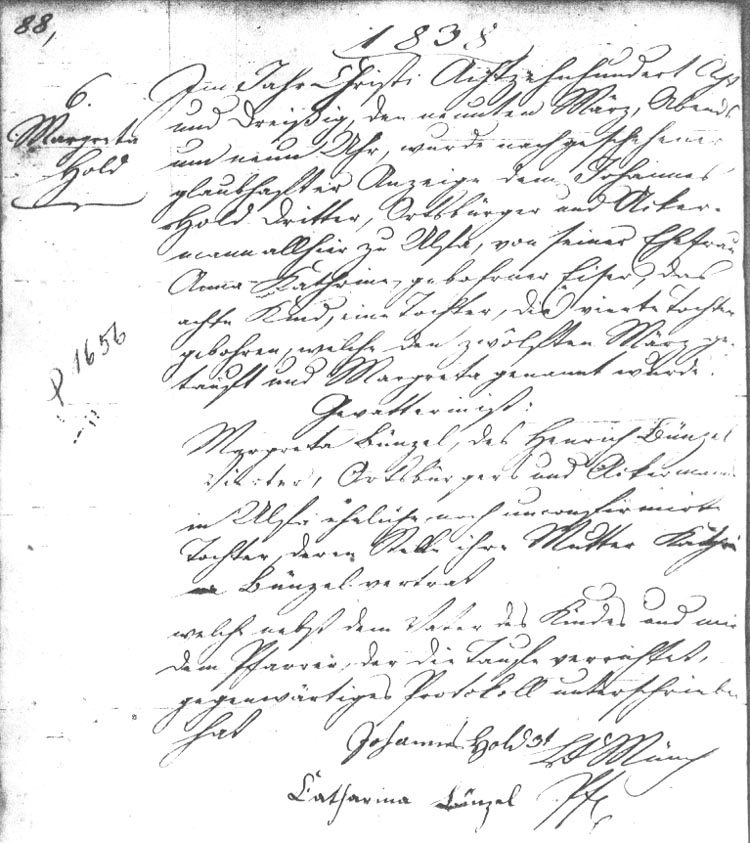 88,
1838
6.
Margreta
Hold
Im Jahr Christi Achtzehnhundert Acht
und Dreißig, den neunten März, Abends
um neun Uhr, wurde nach geschehener
glaubhafter Anzeige dem Johannes
Hold Dritter, Ortsbürger und Acker-
mann allhier zu Ulfa, von seiner Ehefrau
Anna Kathrine, gebohrner Eiser, das
achte Kind, eine Tochter, die vierte Tochter
gebohren, welche den zwölften März ge-
tauft und Margreta genannt wurde.
P 1656
Gevatterin ist:
Margreta Bünzel, des Henrich Bünzel
Ortsbürgers und Ackermann
in Ulfa eheliche noch unconfirmirte
Tochter, deren Stelle ihre Mutter Kathri
ne Bünzel vertrat
welche nebst dem Vater des Kindes und mir
dem Pfarrer, der die Taufe verrichtet,
gegenwärtiges Protokoll unterschrieben
hat
Johannes Hold 3t Münch
Catharina Bünzel Pfr